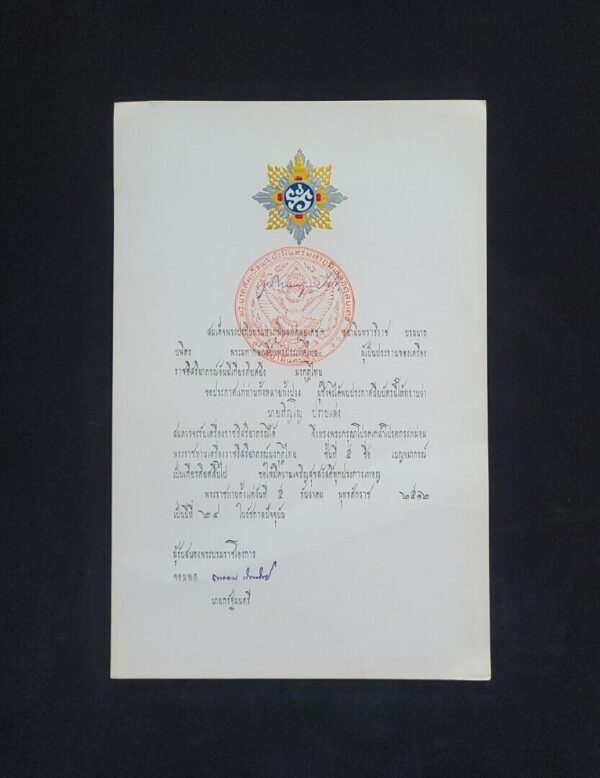 สมเด็จพระปรมินทรมหาภูมิพลอดุลยเดช สยามินทราธิราช บรมนาถ
บพิตร พระมหากษัตริย์แห่งประเทศไทย ผู้เป็นประธานของเครื่อง
ราชอิสริยาภรณ์อันมีเกียรติยศยิ่ง มงกุฎไทย
ขอประกาศแก่ท่านทั้งหลายทั้งปวง ผู้ซึ่งจะได้พบประกาศนียบัตรนี้ให้ทราบว่า
นาย
สมควรจะรับเครื่องราชอิสริยาภรณ์ได้ จึงทรงพระกรุณาโปรดเกล้าโปรดกระหม่อม
พระราชทานเครื่องราชอิสริยาภรณ์มงกุฎไทย ชั้นที่ ๕ ชื่อ เบญจมาภรณ์
เป็นเกียรติยศสืบไป ขอให้มีความเจริญสุขสวัสดิ์ทุกประการเทอญ
พระราชทานตั้งแต่วันที่ ๕ ธันวาคม พุทธศักราช ๒๕๑๒
เป็นปีที่ ๒๔ ในรัชกาลปัจจุบัน
ผู้รับสนองพระบรมราชโองการ
จอมพล
นายกรัฐมนตรี